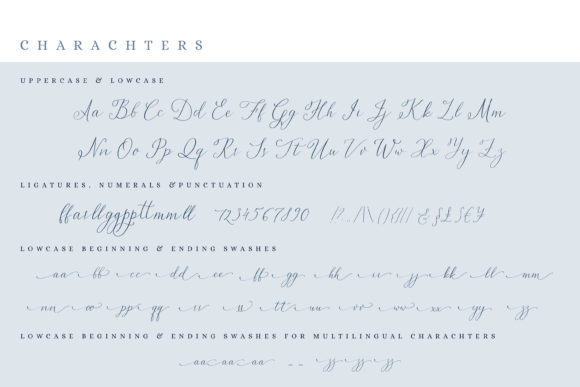 CHARACHTERS
UPPERCASE & LOWCASE
Aa Bb Cc Dd Ee Ff Gg Hh Ii Jj Kk Ll Mm
Nn Oo Pp Qq Rr Ss Tt Uu Vv Ww Xx Yy Zz
LIGATURES, NUMERALS &PUNCTUATION
1234567890
LOWCASE BEGINNING & ENDING SWASHES
aa bb cc dd ee ff gg hh ii jj kk ll mm
nn oo pp qq rr ss tt uu vv ww xx yy zz
LOWCASE BEGINNING & ENDING SWASHES FOR MULTILINGUAL CHARACHTERS